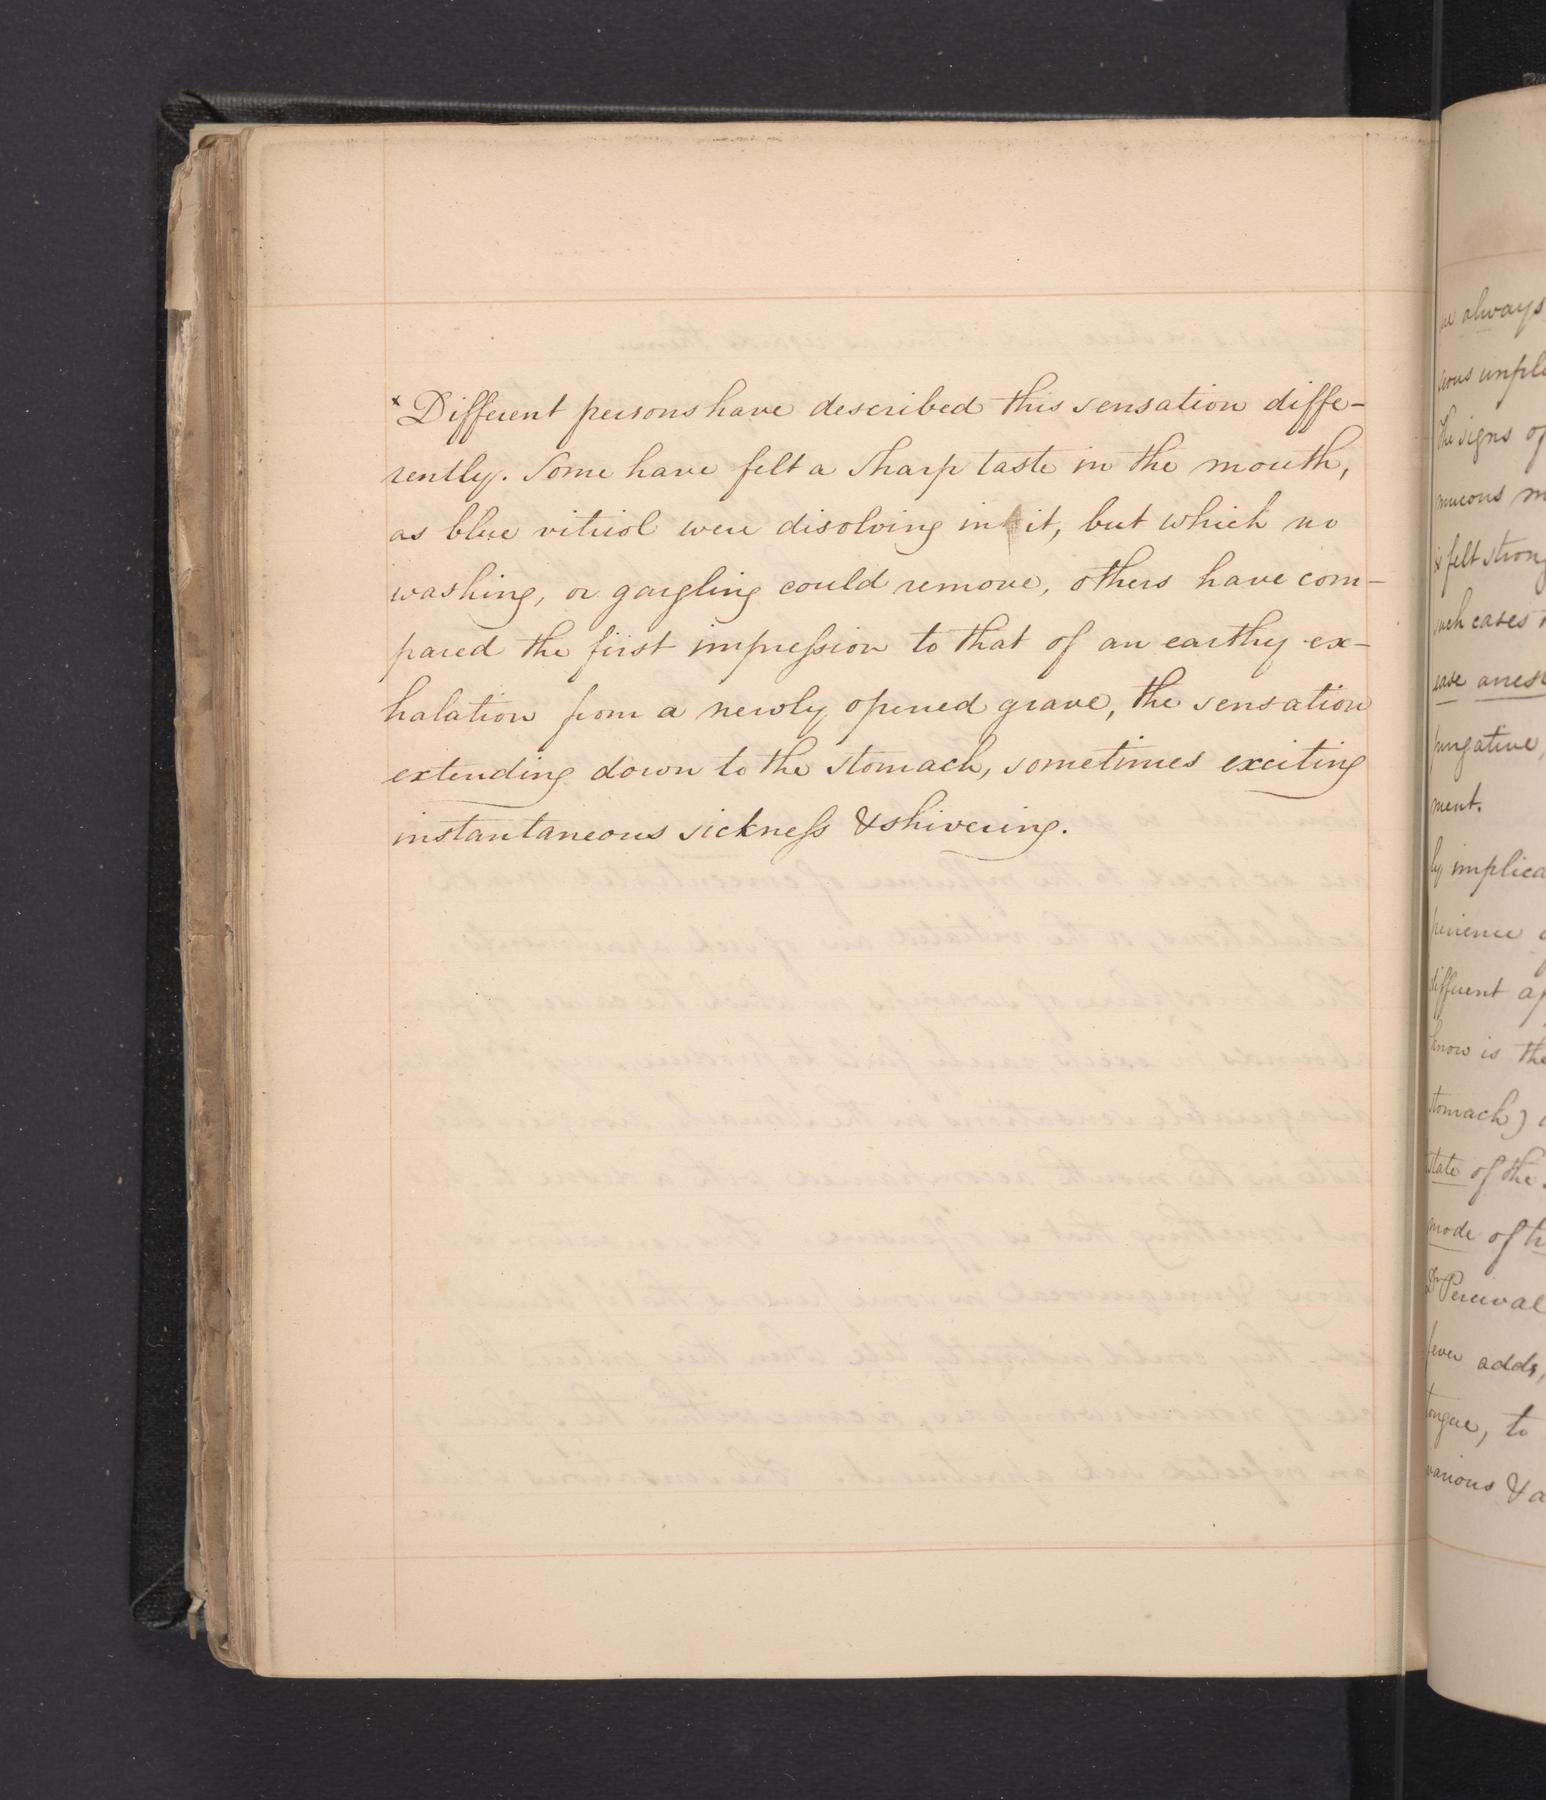 x Different persons have described this sensation diffe-
rently. Some have felt a sharp taste in the mouth,
as blue vitriol were disolving in it, but which no
washing, or gargling could remove, others have com-
pared the first impression to that of an earthy ex-
halation from a newly opened grave, the sensation
extending down to the stomach, sometimes exciting
instantaneous sickness & shivering.
always
the signs of
mucous
is felt strong
such cases
purgative,
ment.
by implica
different
know is the
stomach)
state of the
mode of
Dr Percival
fever adds,
tongue, to
various & a